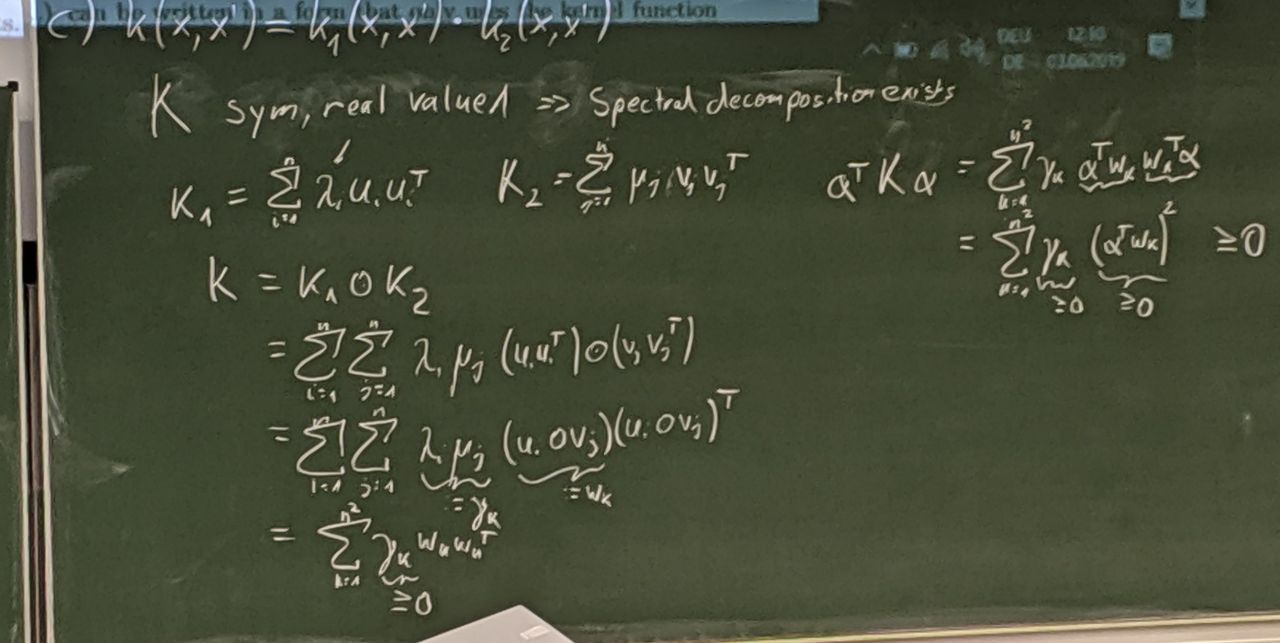 ) can be written in a form that only uses the kernel function
s.
c) k(x,x') = k₁(x,x') · k₂(x,x')
DEU 12:10
DE 03.06.2019
K sym, real valued => Spectral decomposition exists
K₁ = Σᵢ₌₁ⁿ λᵢ uᵢ uᵢᵀ K₂ = Σⱼ₌₁ⁿ μⱼ vⱼ vⱼᵀ
K = K₁ ∘ K₂
= Σᵢ₌₁ⁿ Σⱼ₌₁ⁿ λᵢ μⱼ (uᵢ uᵢᵀ) ∘ (vⱼ vⱼᵀ)
= Σᵢ₌₁ⁿ Σⱼ₌₁ⁿ λᵢ μⱼ (uᵢ ∘ vⱼ)(uᵢ ∘ vⱼ)ᵀ
:= γₖ := wₖ
= Σₖ₌₁ⁿ² γₖ wₖ wₖᵀ
≥0
αᵀ K α = Σₖ₌₁ⁿ² γₖ αᵀwₖ wₖᵀα
= Σₖ₌₁ⁿ² γₖ (αᵀwₖ)² ≥0
≥0 ≥0